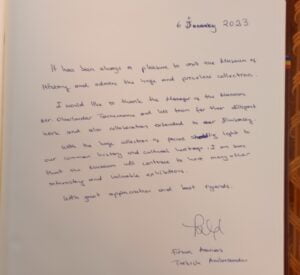 6 January 2023
It has been always a pleasure to visit the Museum of
History and admire the huge and priceless collection.
I would like to thank the Manager of the Museum
and her team for their diligent
work and also collaboration extended to our Embassy.
With the huge collection of
our common history and cultural heritage. I am sure
that the Museum will continue to have many other
interesting and valuable exhibitions.
With great appreciation and best regards.
Turkish Ambassador